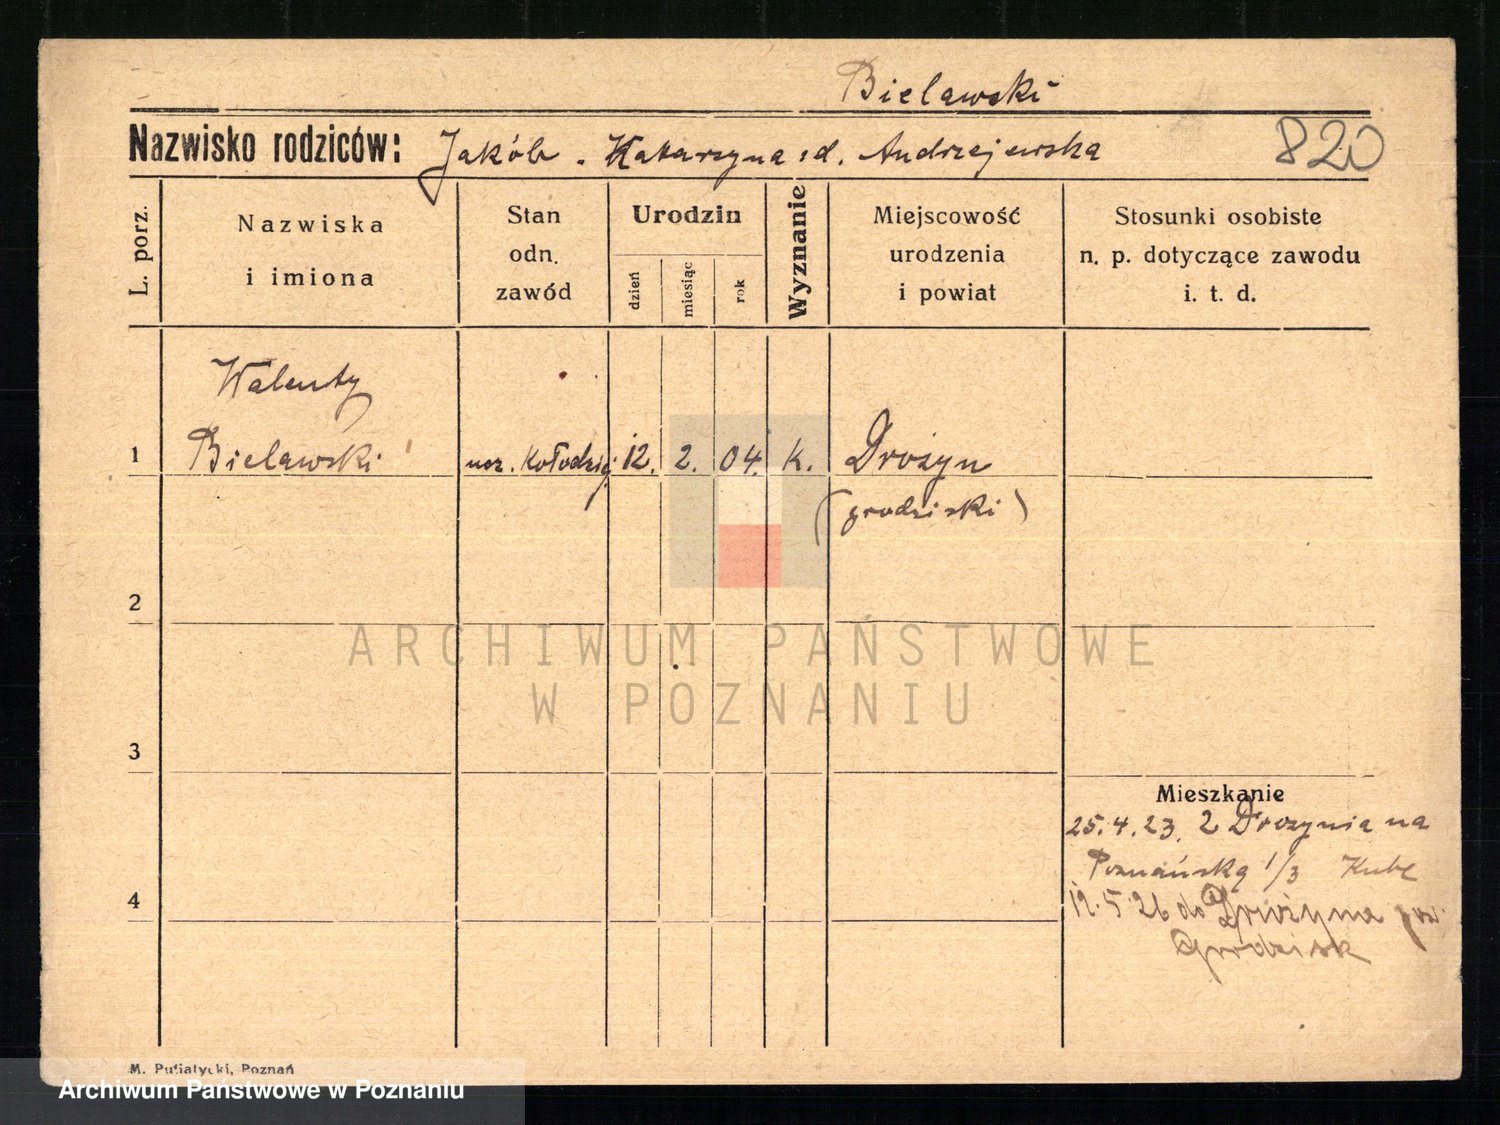 Bielawski
Nazwisko rodziców: Jakób - Katarzyna z d. Andrzejewska 820
L. porz.
Nazwiska
i imiona
Stan
odn.
zawód
Urodzin
dzień
miesiąc
rok
Wyznanie
Miejscowość
urodzenia
i powiat
Stosunki osobiste
n. p. dotyczące zawodu
i. t. d.
Walenty
1 Bielawski ucz. Kołodziej 12. 2. 04. k. Drożyn
(grodziski)
2
ARCHIWUM PAŃSTWOWE
W POZNANIU
3
Mieszkanie
25.4.23. z Drożynia na
Poznańską 1/3
4
12.5.26 do Drożyna pow.
Grodzisk
M. Putiatycki, Poznań
Archiwum Państwowe w Poznaniu